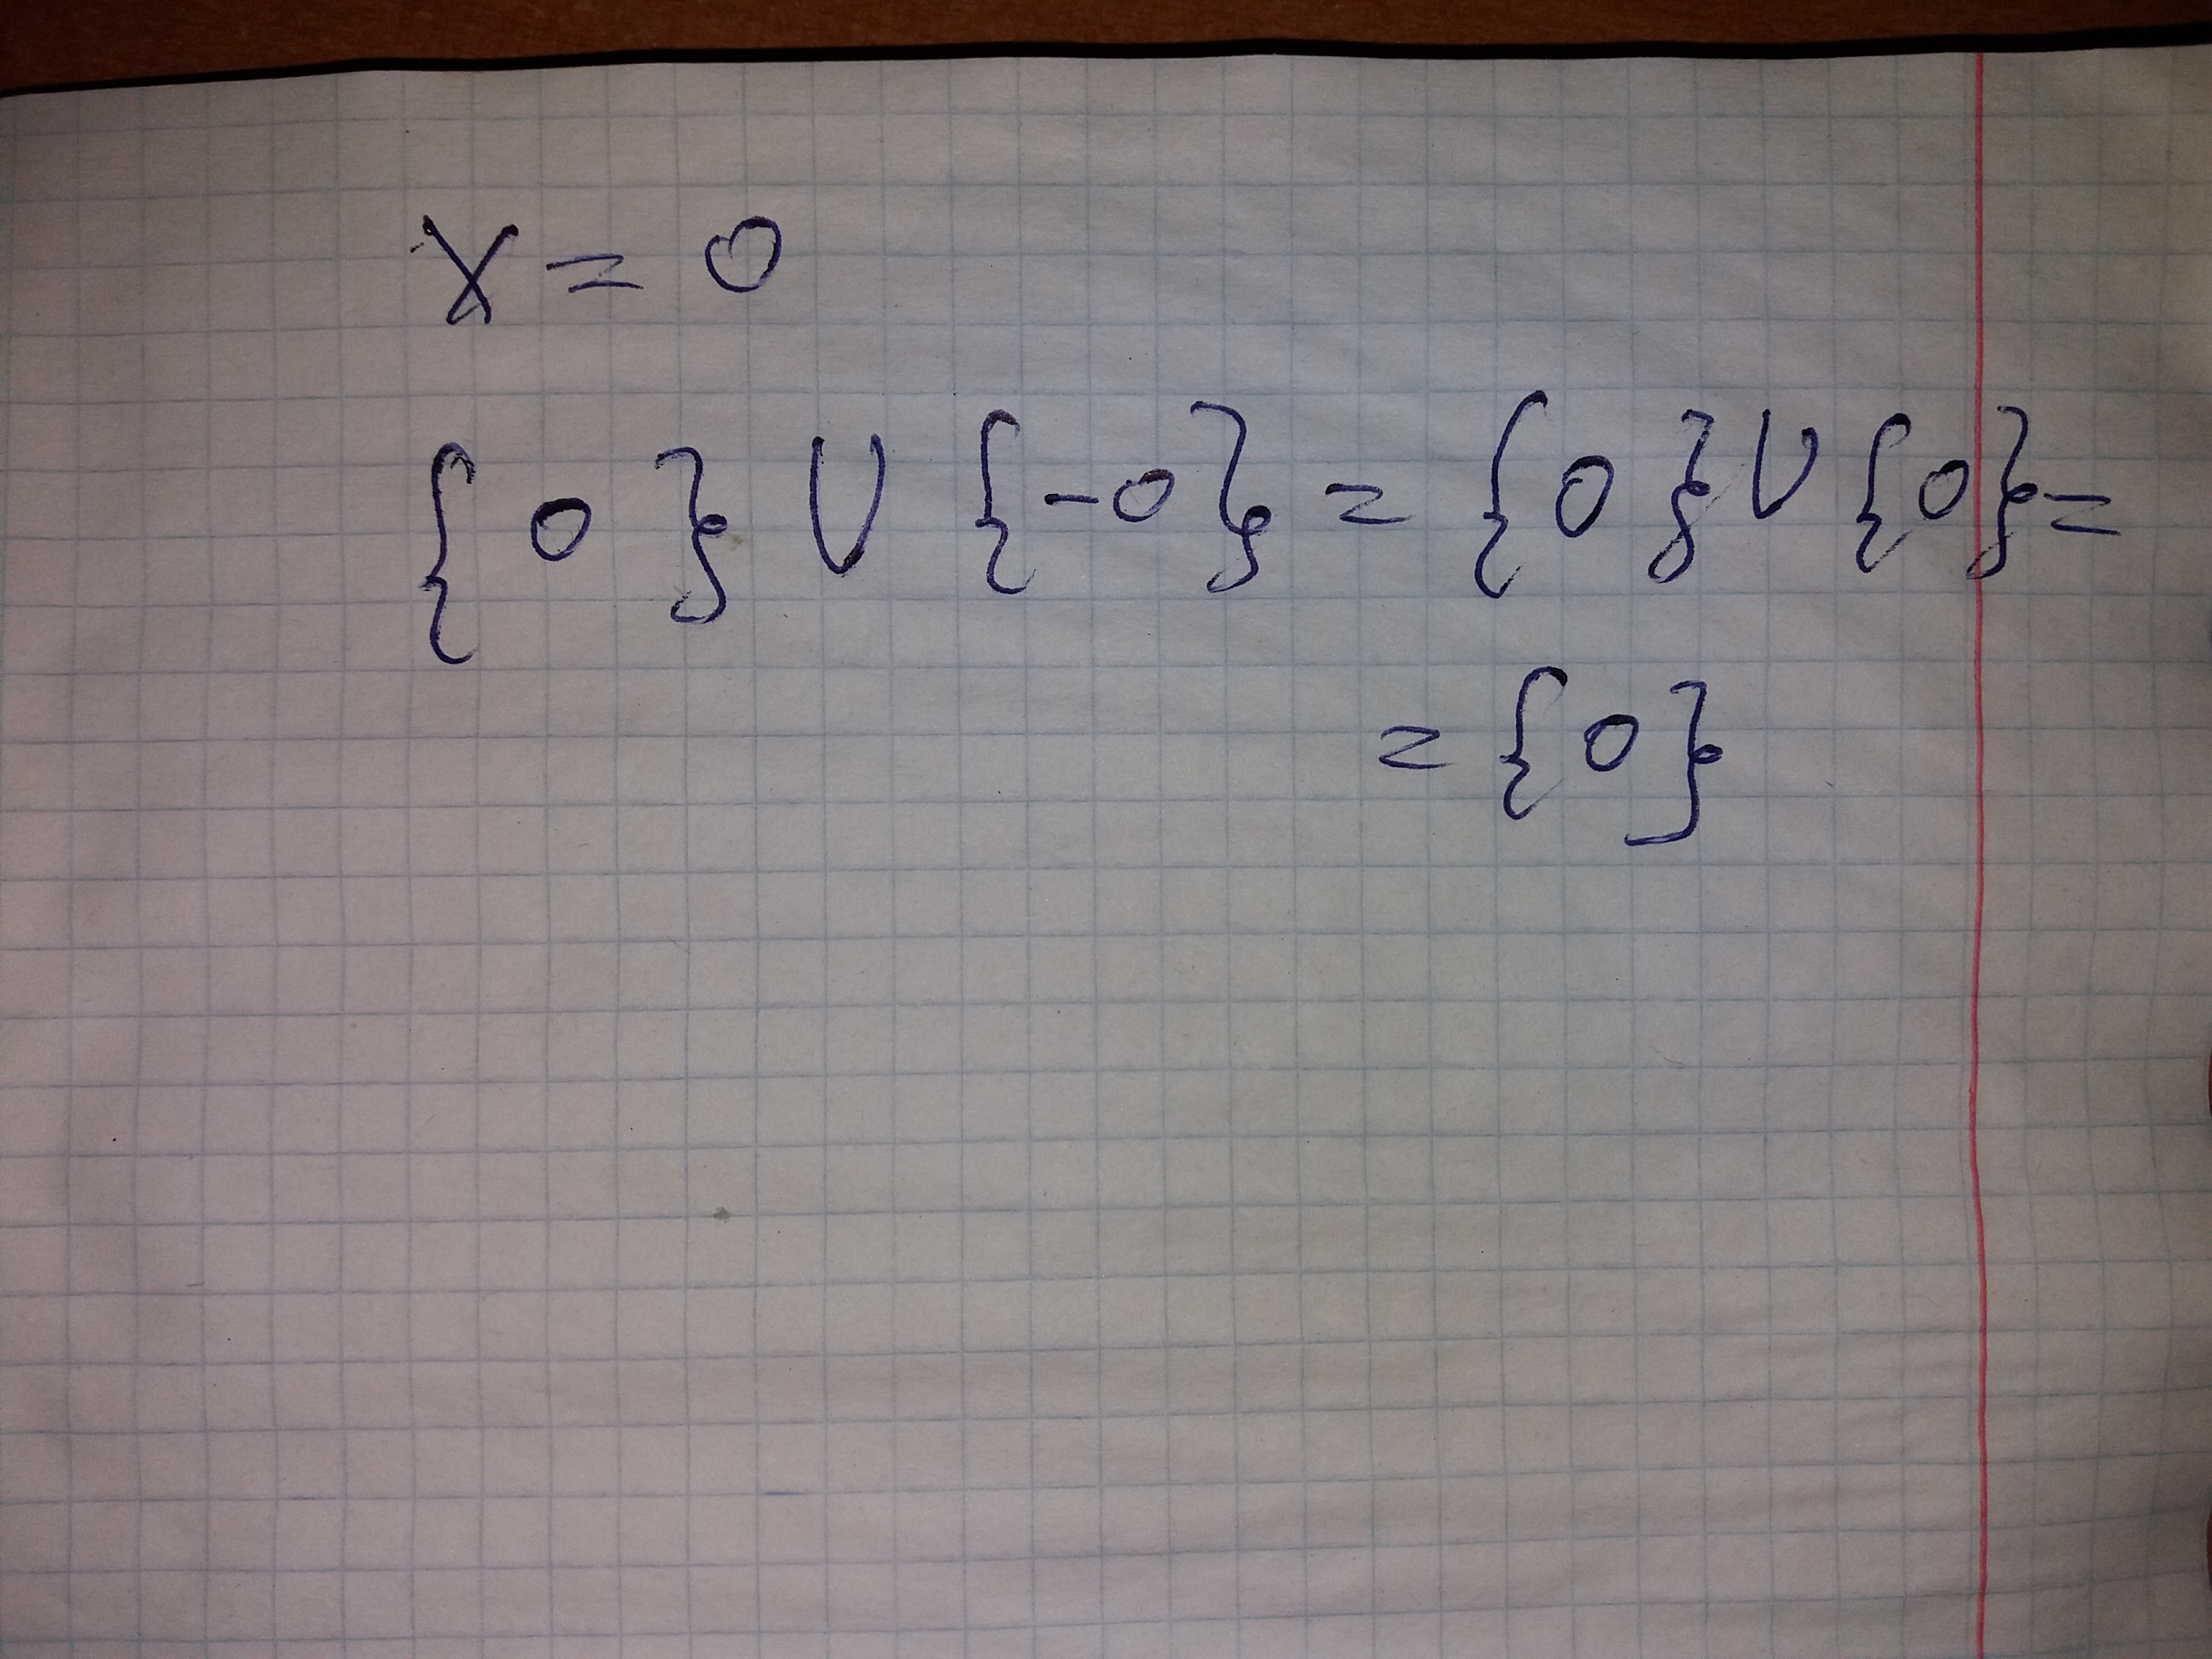 x = 0
{0} ∪ {-0} = {0} ∪ {0} =
= {0}